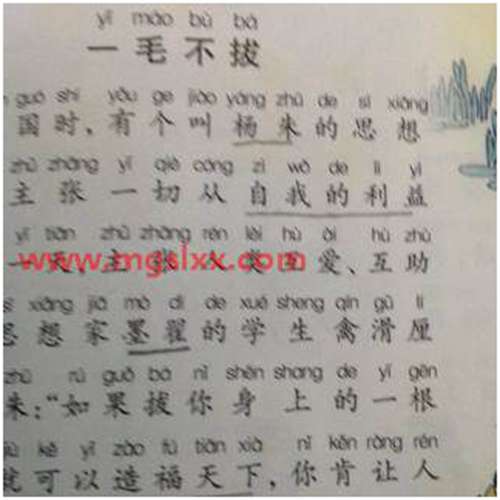 yī máo bù bá
一毛不拔
guó shí yǒu ge jiào yáng zhū de sī xiǎng
国时,有个叫杨朱的思想
zhǔ zhāng yī qiè cóng zì wǒ de lì yì
主张一切从自我的利益
yī tiān zhǔ zhāng rén lèi hù ài hù zhù
一天,主张人类互爱、互助
www.mgslxx.com
xiǎng jiā mò dí de xué sheng qín gǔ lí
思想家墨翟的学生禽滑厘
zhū rú guǒ bá nǐ shēn shang de yī gēn
朱:“如果拔你身上的一根
jiù kě yǐ zào fú tiān xià nǐ kěn ràng rén
就可以造福天下,你肯让人